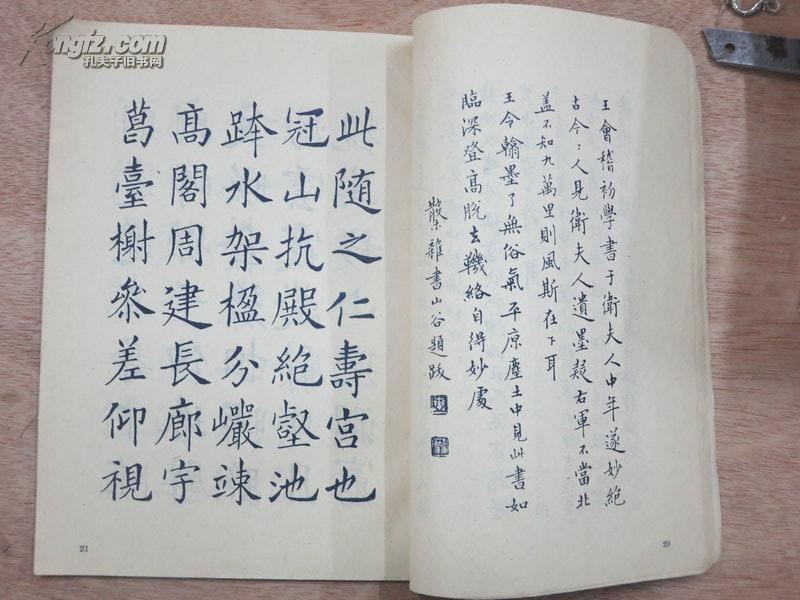 王會稽初學書于衛夫人中年遂妙絕
古今〻人見衛夫人遺墨疑右軍不當北
盖不知九萬里則風斯在下耳
王令翰墨了無俗氣平原塵土中見此書如
臨深登高脫去鞿絡自得妙處
散雜書山谷題跋
20
此隨之仁壽宮也
冠山抗殿絕壑池
跨水架楹分巖竦
高閣周建長廊宇
葛臺榭參差仰視
21
Kongfz.com
孔夫子旧书网